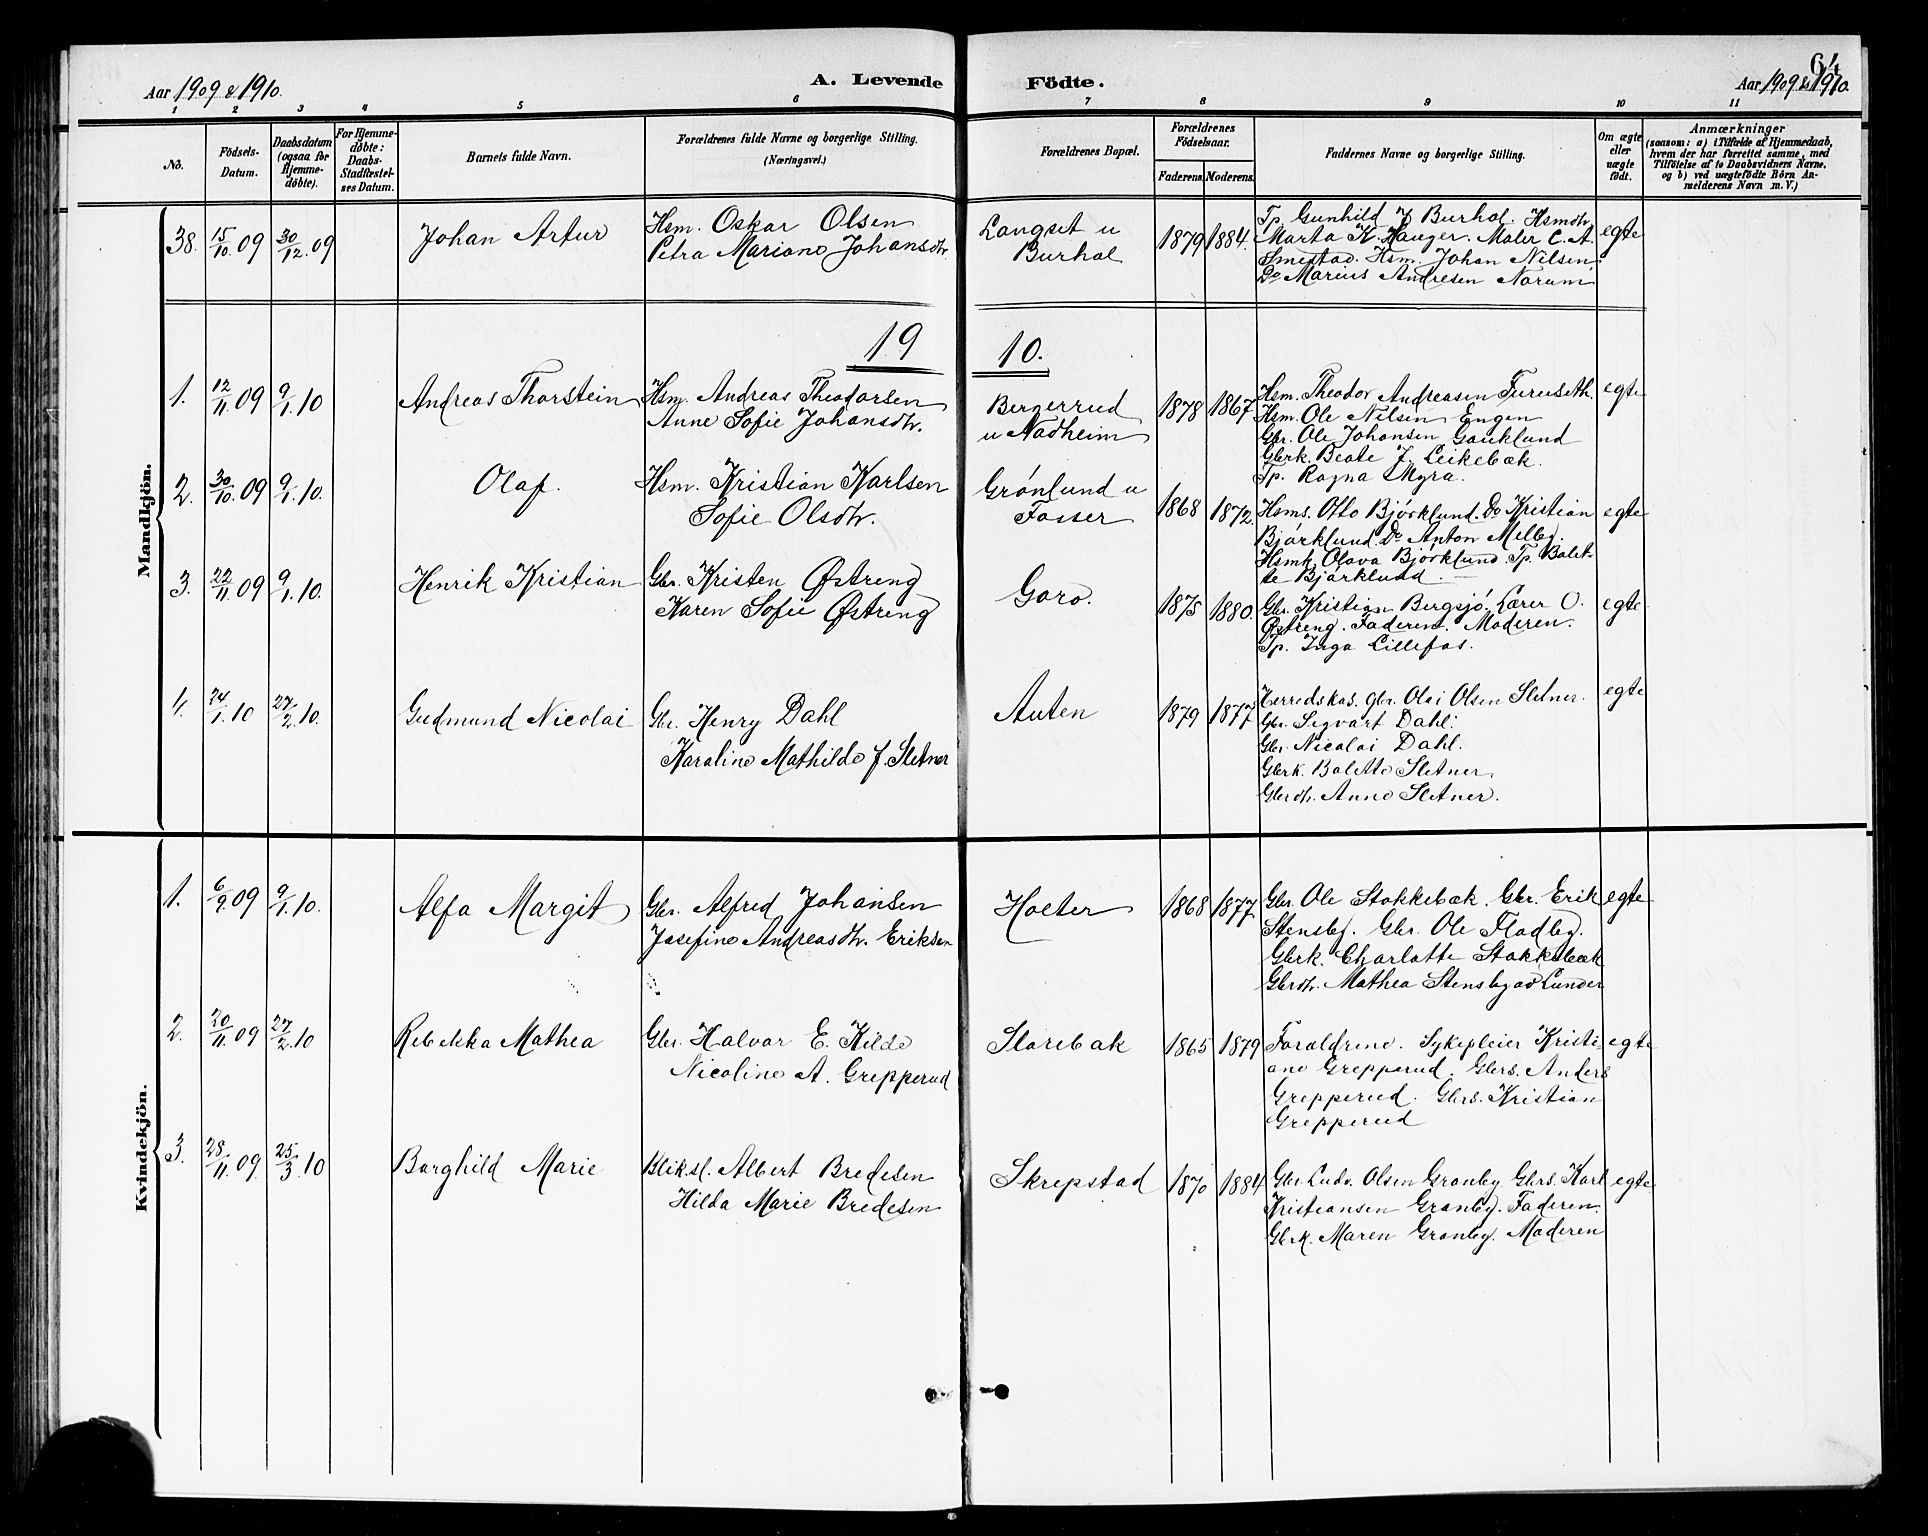 64
Aar 1909 & 1910.
A. Levende
Födte.
Aar 1909 & 1910.
1 2 3 4 5 6 7 8 9 10 11
No.
Födsels-
Datum.
Daabsdatum
(ogsaa for
Hjemme-
döbte).
For Hjemme-
döbte:
Daabs-
Stadfæstel-
ses Datum.
Barnets fulde Navn.
Forældrenes fulde Navne og borgerlige Stilling.
(Næringsvei.)
Forældrenes Bopæl.
Forældrenes
Födselsaar.
Faderens
Moderens
Faddernes Navne og borgerlige Stilling.
Om ægte
eller
uægte
födt.
Anmærkninger
(saasom: a) i Tilfælde af Hjemmedaab,
hvem der har forrettet samme, med
Tilföielse af to Daabsvidners Navne,
og b) ved uægtefödte Börn An-
melderens Navn m. V.)
Mandkjön.
38. 15/10 09 30/12 09 Johan Artur
Hsm. Oskar Olsen
Petra Mariane Johansdtr.
Langset u
Burhol
1879 1884.
Tp. Gunhild J Burhol. Hsmdtr.
Marta K. Hauger. Maler C. A.
Smestad. Hsm. Johan Nilsen
Do Marius Andresen Norum
egte
19 10.
1. 12/11 09 9/1 10 Andreas Thorstein
Hsm. Andreas Theodorsen
Anne Sofie Johansdtr.
Bergerrud
u Nadheim
1878 1867
Hsm. Theodor Andreasen Furuseth.
Hsm. Ole Nilsen Engen
Gbr. Ole Johansen Gauklund
Gbrk. Beate J. Leikebæk.
Tp. Ragna Myra.
egte
2. 30/10 09 9/1 10. Olaf.
Hsm. Kristian Karlsen
Sofie Olsdtr.
Grönlund u
Fosser
1868 1872.
Hsms. Otto Bjørklund. Do Kristian
Bjørklund. Do Anton Melby.
Hsmk. Olava Bjørklund Tp. Balet-
te Bjørklund
egte
3. 22/11 09 9/1 10. Henrik Kristian
Gbr. Kristen Østreng
Karen Sofie Østreng
Garo.
1875 1880.
Gbr. Kristian Bergsjö. Lærer O.
Østreng. Faderen. Moderen.
Tp. Inga Lillefos.
egte
4. 24/1 10 27/2 10. Gudmund Nicolai
Gbr. Henry Dahl
Karoline Mathilde f. Sletner
Auten
1879 1877
Herredskas. gbr. Olai Olsen Sletner.
Gbr. Sigvart Dahl.
Gbr. Nicolai Dahl.
Gbrk. Balette Sletner
Gbrdtr. Anne Sletner.
egte
Kvindekjön.
1. 6/9 09 9/1 10. Alfa Margit
Gbr. Alfred Johansen
Josefine Andreasdtr. Eriksen
Holter
1868 1877
Gbr. Ole Stokkebæk. Gbr. Erik
Stensby. Gbr. Ole Flodby.
Gbrk. Charlotte Stokkebæk
Gbrdtr. Mathea Stensby ad Lunder
egte
2. 20/11 09 27/2 10 Rebekka Mathea
Gbr. Halvor E. Kilde
Nicoline A. Grepperud
Starebak
1865 1879
Forældrene. Sykepleier Kristi-
ane Grepperud. Gbrs. Anders
Grepperud. Gbrs. Kristian
Grepperud
egte
3. 28/11 09. 25/3 10 Borghild Marie
Bliksl. Albert Bredesen
Hilda Marie Bredesen
Skrepstad
1870 1884
Gbr. Ludv. Olsen Granby. Gbrs. Karl
Kristiansen Granby. Faderen.
Gbrk. Maren Granby. Moderen
egte